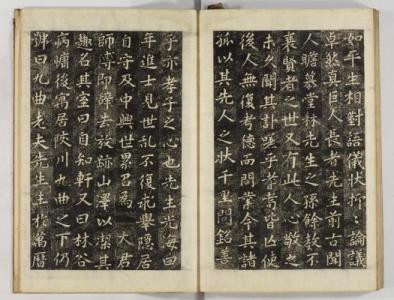 如平生相對語儀狀折々論議
卓然真巨人長者先生前古聞
人瞻慕堂林先生之孫餘教不
衰賢者之世又有此人心敬之
未久聞其訃嗟乎耆耈皆亡使
後人無復考德而問業今其諸
孤以其先人之狀千里問銘善
乎亦孝子之心也先生光海由
年進士見世乱不復求舉隱居
自守及中興世累召為 大君
師傅即辭去放跡山澤以潔其
趣名其室曰自知軒又曰林谷
病孀後寓居陜川九曲之下仍
號曰九曲老夫先生生於萬曆